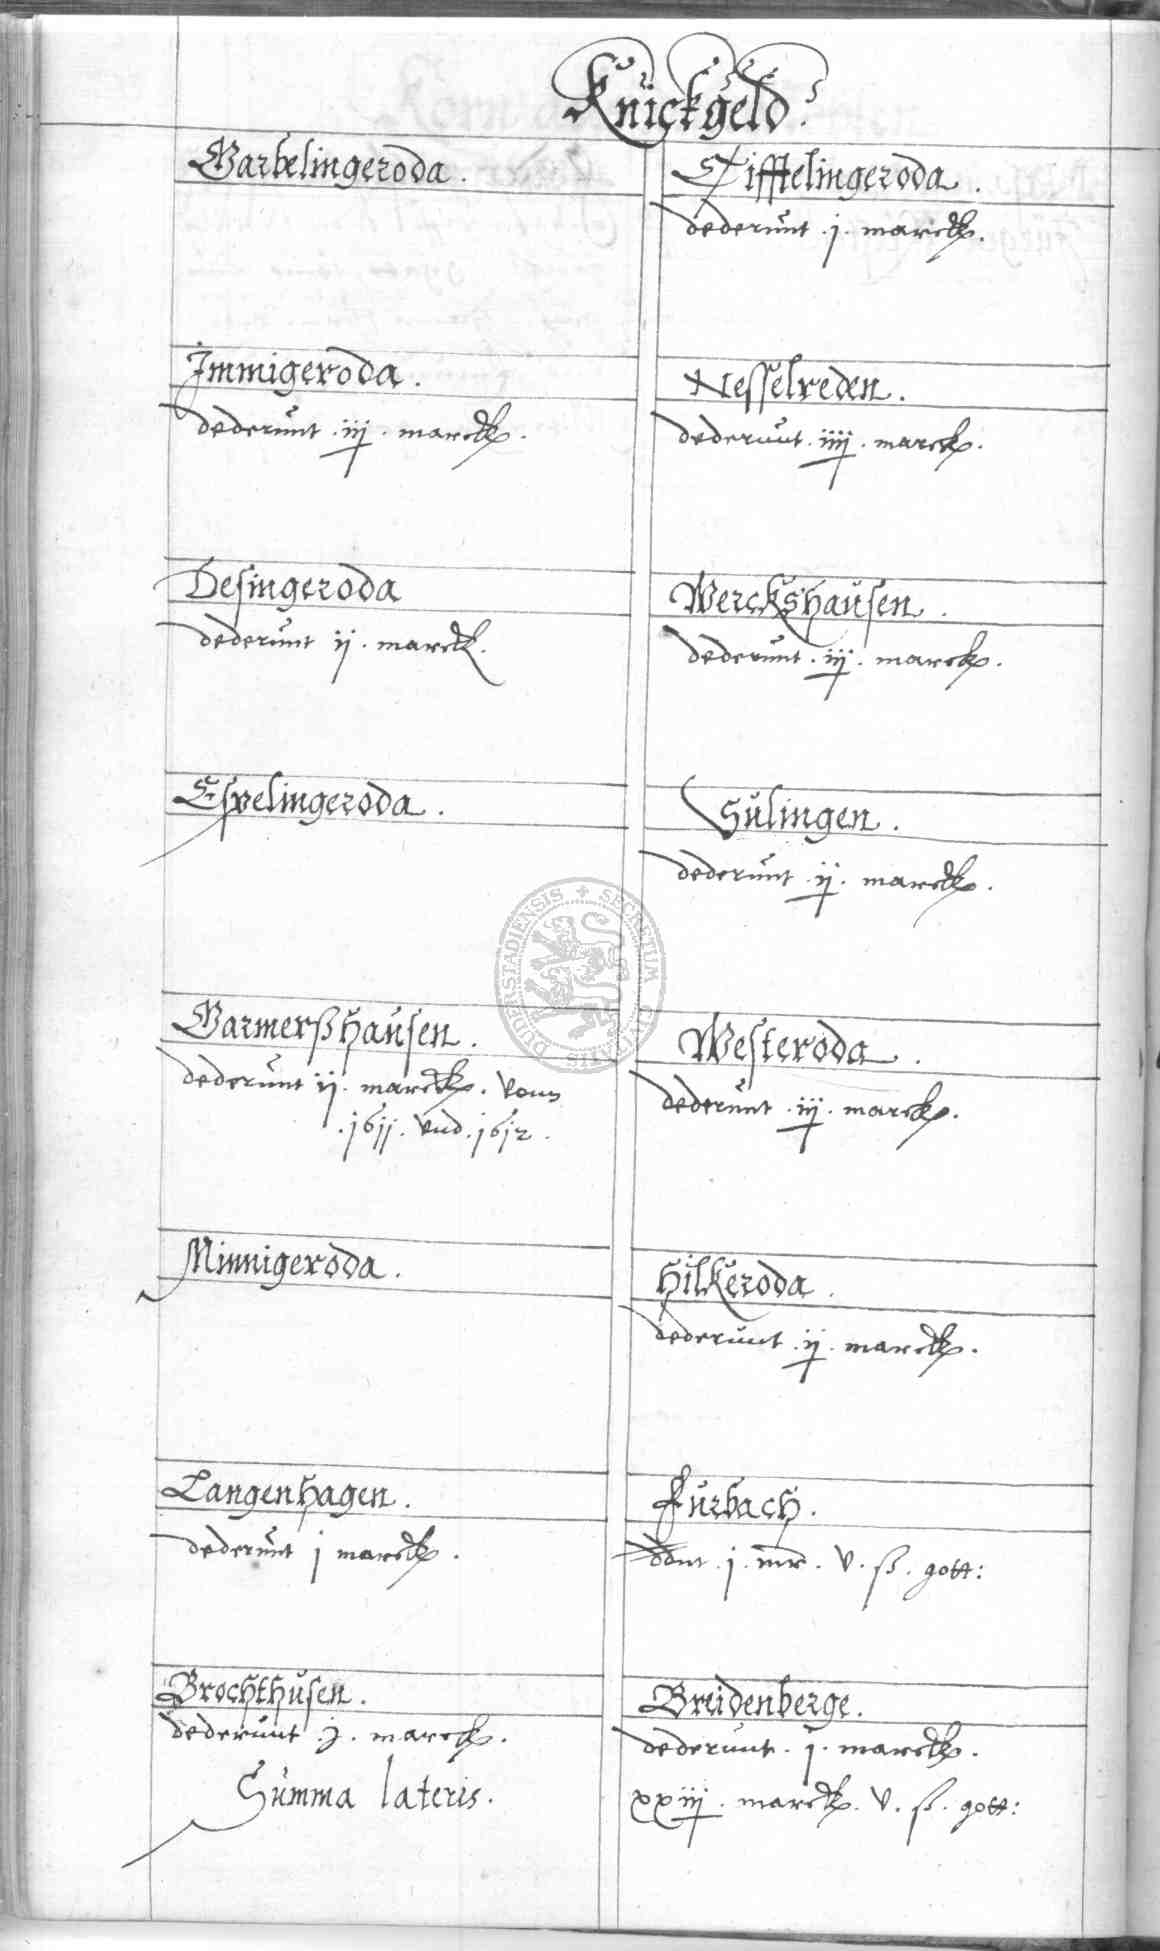 Knickgeld.
Warbelingeroda.
Immigeroda.
dederunt .iij. marck.
Desingeroda
dederunt ij. marck.
Espelingeroda.
Warmerßhausen.
dederunt ij. marck. vonn
.1611. vnd .1612.
Minnigeroda.
Langenhagen.
dederunt j marck.
Brochthusen.
dederunt .j. marck.
Summa lateris.
Tifftelingeroda.
dederunt .j. marck.
Nesselreden.
dederunt .iiij. marck.
Werckshausen.
dederunt .iij. marck.
Sulingen.
dederunt .ij. marck.
Westeroda.
dederunt .iij. marck.
Hilkeroda.
dederunt .ij. marck.
Furbach.
ddnt .j. mr. v. ß. gott:
Breidenberge.
dederunt. j. marck.
xxiij. marck. v. ß. gott:
SECRETUM CIVITATIS DUDERSTADIENSIS